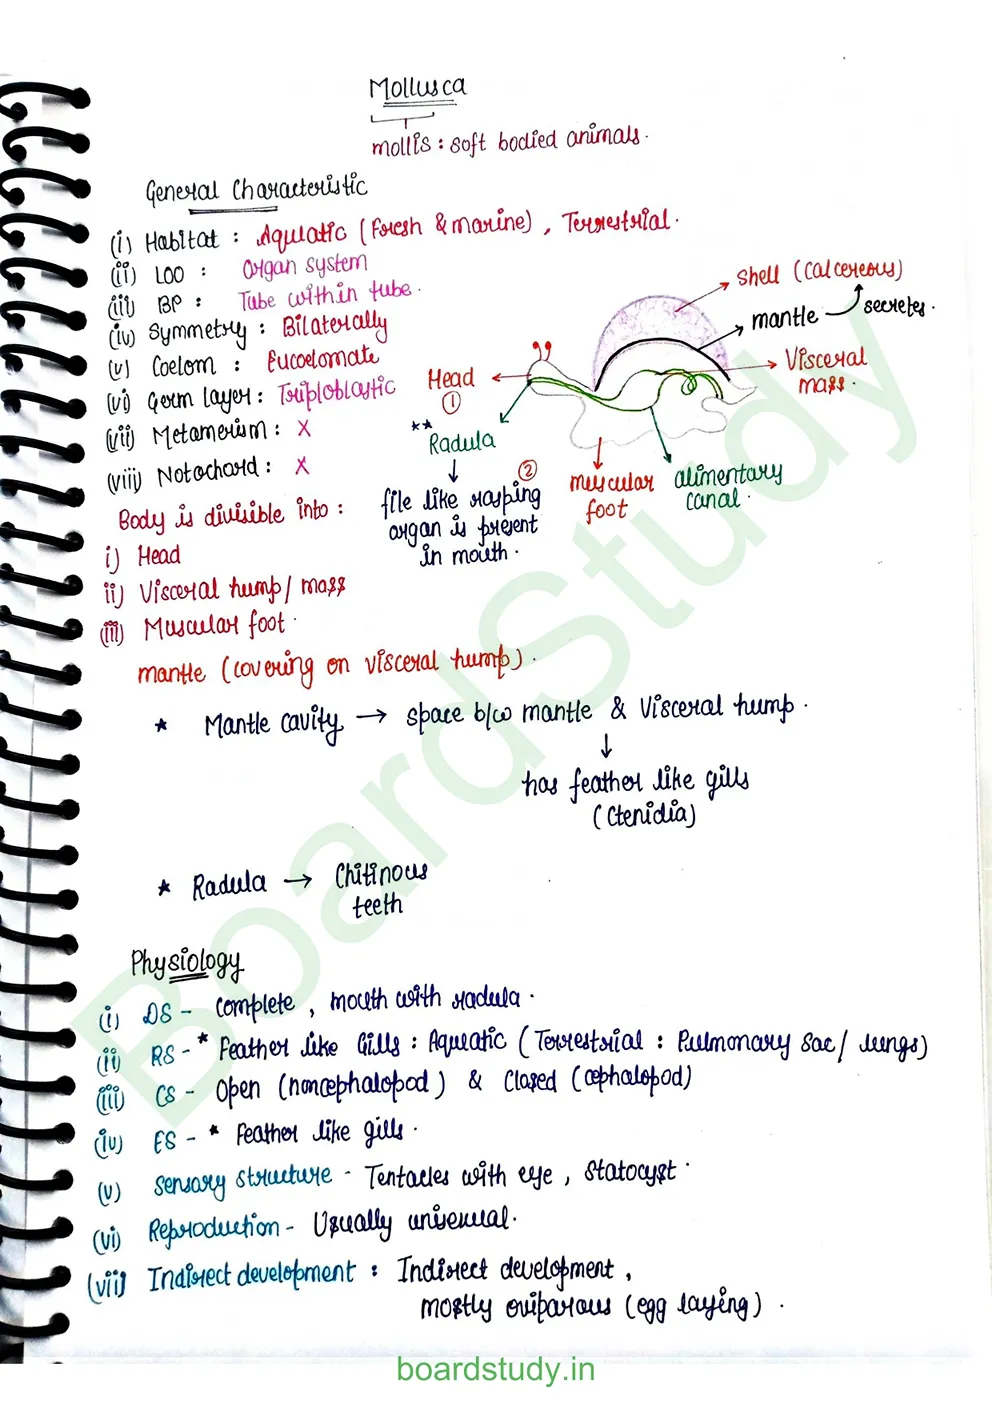 Mollusca
mollis : soft bodied animals.
General Characteristic
(i) Habitat : Aquatic (Fresh & marine), Terrestrial.
(ii) LOO : Organ system
(iii) BP : Tube within tube.
(iv) Symmetry : Bilaterally
(v) Coelom : Eucoelomate
(vi) Germ layer : Triploblastic
(vii) Metamerism : X
(viii) Notochord : X
Shell (Calcereous)
mantle secretes.
Visceral
mass.
Head
①
**
Radula
②
file like rasping
organ is present
in mouth.
muscular
foot
alimentary
canal.
Body is divisible into :
i) Head
ii) Visceral hump/ mass
(iii) Muscular foot.
mantle (covering on visceral hump).
* Mantle cavity → space b/w mantle & Visceral hump.
↓
has feather like gills
(Ctenidia)
* Radula → Chitinous
teeth
Physiology
(i) DS - Complete, mouth with radula.
(ii) RS - * Feather like Gills : Aquatic (Terrestrial : Pulmonary Sac/ lungs)
(iii) CS - Open (noncephalopod) & Closed (cephalopod)
(iv) ES - * Feather like gills.
(v) Sensory structure - Tentacles with eye, Statocyst.
(vi) Reproduction - Usually unisexual.
(vii) Indirect development : Indirect development,
mostly oviparous (egg laying).
BoardStudy
boardstudy.in